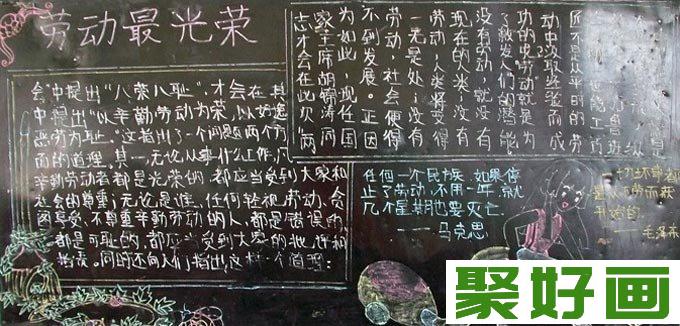 劳动最光荣
匠不是从平时的劳
动中汲取经验而成
功的 劳动就是为
了激发人们的潜能
没有劳动,就没有
现在的人类;没有
劳动,人类将变得
一无是处;没有
劳动,社会便得
不到发展。正因
为如此,现任国
家主席胡锦涛同
志才会在此次“两
会中提出“八荣八耻”,才会在其
中提出“以辛勤劳动为荣,以好逸
恶劳为耻。”这指出了一个问题两个方
面的道理。其一,无论从事什么工作,凡
辛勤劳动者都是光荣的,都应当受到大家和
社会的尊重;无论是谁,任何轻视劳动、贪
图享受、不尊重辛勤劳动的人,都是错误的
,都是可耻的,都应当受到大家的批评和
指责。同时还向人们指出,这样一个道理:
任何一个民族,如果停
止了劳动,不用一年,就
几个星期也要灭亡.
——马克思
一切坏事都
是从不劳而获
开始的.
——毛泽东
聚好画